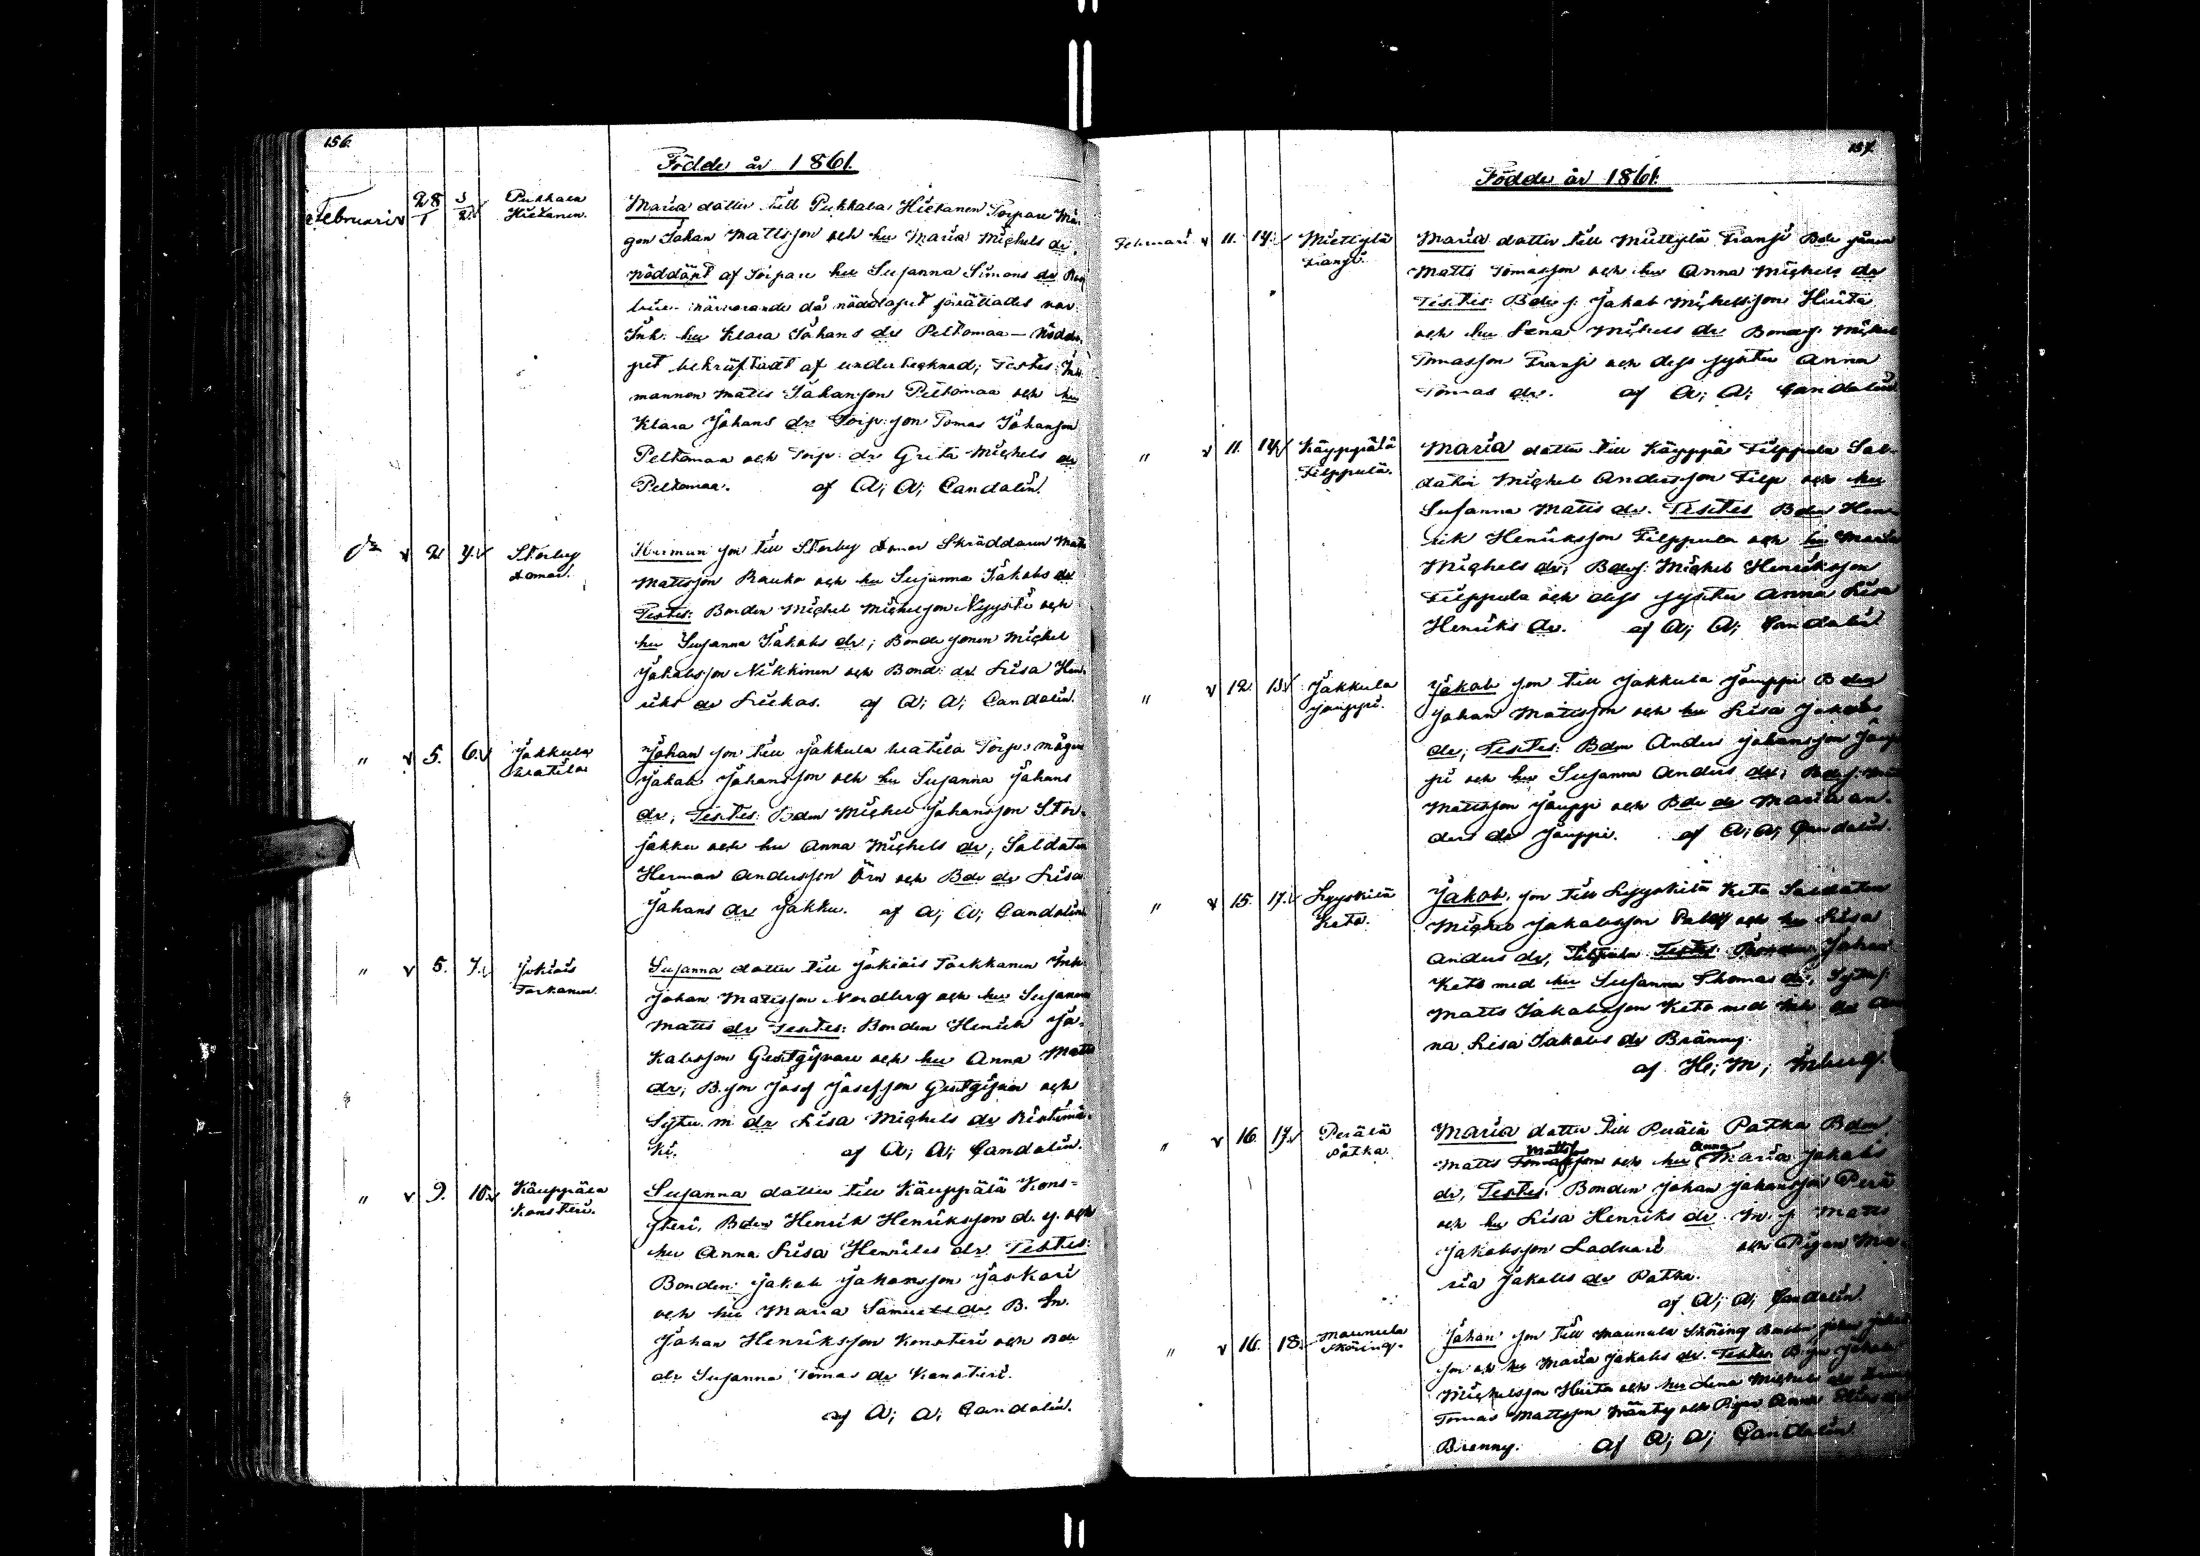 156.
Födde år 1861.
Februari v 28/1 3/2 v Pukkala Hietanen.
Maria dotter till Pukkala Hietanen Torpare Må-
gen Johan Mattsson och hu Maria Michels dr,
nöddöpt af Torpare hu Susanna Simons dr
närvarande då nöddopet förrättades var
Inh. hu Klara Johans dr Peltomaa — Nöddo-
pet bekräftadt af undertecknad; Testes: In
mannen Matts Johansson Peltomaa och hu
Klara Johans dr Torp: son Tomas Johansson
Peltomaa och Torp: dr Greta Michels dr
Peltomaa. af A; A; Candolin.
v 2 4. v Storby
Herman son till Storby Skräddaren Matts
Mattsson Rauko och hu Susanna Jakobs dr
Testes: Bonden Michel Michelsson Nyysti och
hu Susanna Jakobs dr; Bonde sonen Michel
Jakobsson Nikkinen och Bond: dr Lisa Hen-
riks dr Liukas. af A; A; Candolin.
" v 5. 6. v Jakkula
Johan son till Jakkula Torp: mågen
Jakob Johansson och hu Susanna Johans
dr; Testes: Bdn Michel Johansson Stor-
jakku och hu Anna Michels dr; Soldaten
Herman Andersson Örn och Bde dr Lisa
Johans dr Jakku. af A; A; Candolin
" v 5. 7. v Jokiais Torkanen.
Susanna dotter till Jokiais Torkkanen Inh.
Johan Mattsson Nordberg och hu Susanna
Matts dr Testes: Bonden Henrik Ja-
kobsson Gestgifvare och hu Anna Matts
dr; B. son Josef Josefsson Gestgifvare och
Lisa Michels dr Ristimä-
ki. af A; A; Candolin.
" v 9. 10. v Käuppälä Konsteri.
Susanna dotter till Käuppälä Kons-
teri, Bden Henrik Henriksson d. y. och
hu Anna Lisa Henriks dr Testes:
Bonden: Jakob Johansson Jaskari
och hu Maria Samuels dr B. Sn.
Johan Henriksson Konsteri och Bde
dr Susanna Tomas dr Konsteri.
af A; A; Candolin.
157.
Födde år 1861.
Februari v 11. 14. Miettylä Fransi.
Maria dotter till Miettylä Fransi Bde sonen
Matts Tomasson och hu Anna Michels dr
Testes: Bde s: Jakob Michelsson Hiuta
och hu Lena Michels dr Bondes: Michel
Tomasson Fransi och dess syster Anna
Tomas dr. af A; A; Candolin
" v 11. 14. v Käyppälä Filppula.
Maria dotter till Käyppä Filppula Sol-
daten Michel Andersson Filp och hu
Susanna Matts dr. Testes Bdn Hen-
rik Henriksson Filppula och hu Maria
Michels dr; Bdes: Michel Henriksson
Filppula och dess syster Anna Lisa
Henriks dr. af A; A; Candolin
" v 12 13. v Jakkula Jouppi.
Jakob son till Jakkula Jouppi Bden
Johan Mattsson och hu Lisa Jakobs
dr; Testes: Bdn Anders Johansson Joup-
pi och hu Susanna Anders dr; Bdes:
Mattsson Jouppi och Bde dr Maria An-
ders dr Jouppi. af A; A; Candolin.
" v 15. 17. v Lyyskilä Keto.
Jakob. son till Lyyskilä Keto Soldaten
Michel Jakobsson och hu Lisa
Anders dr, Testes: Bonden Johan
Keto med hu Susanna Thomas dr,
Matts Jakobsson Keto med Inh dr An-
na Lisa Jakobs dr Bränny.
af H; M; Inberg.
" v 16. 17. v Perälä Patka
Maria dotter till Perälä Patka Bdn
Matts Mattss och hu Anna Maria Jakobs
dr, Testes: Bonden Johan Johansson Perä
och hu Lisa Henriks dr. In. s. Matts
Jakobsson Ladvari och Pigan Ma-
ria Jakobs dr Patka.
af A; A; Candolin.
" v 16. 18. Maunula Sköring.
Johan son till Maunula Sköring Bonden Johan
son och hu Maria Jakobs dr. Testes: Bson Jakob
Michelsson Hiuta och hu Lena Michels dr
Tomas Mattsson Mänty och Pigan Anna
Brenny. af A; A; Candolin